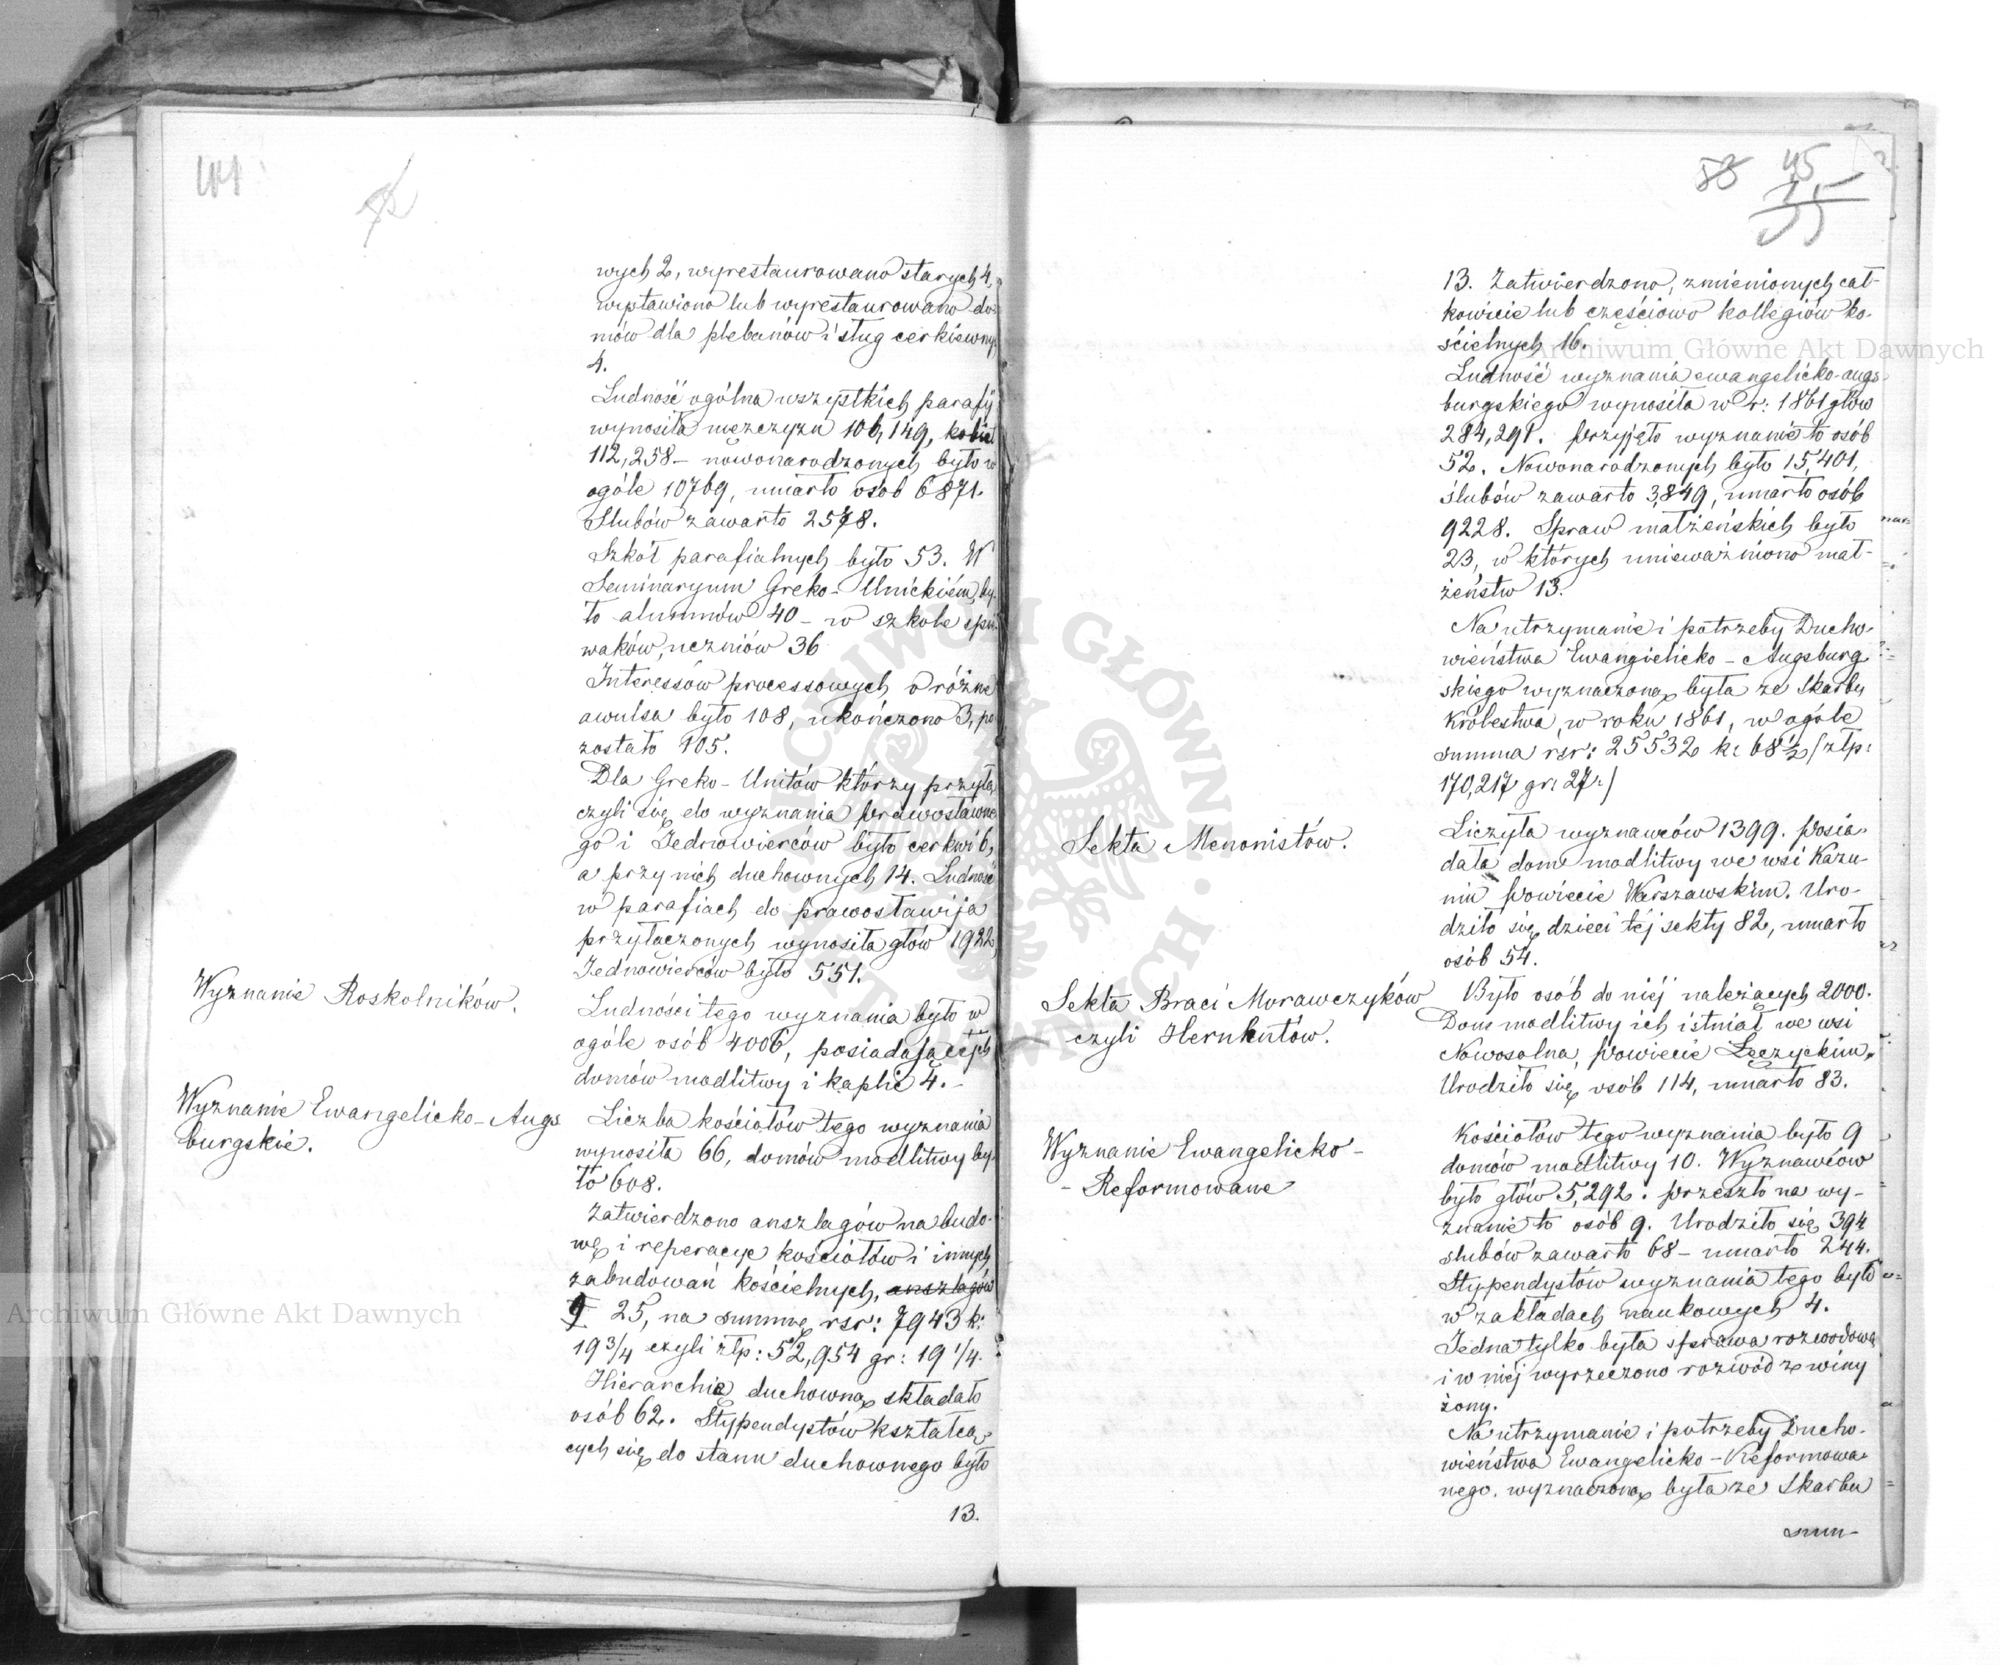 wych 2, wyrestaurowano starych 4,
wystawiono lub wyrestaurowano do-
mów dla plebanów i sług cerkiewny
4.
Ludność ogólna wszystkich parafij
wynosiła mężczyzn 106,149, kobiet
112,258 – nowonarodzonych było w
ogóle 10769, umarło osób 6871.
Ślubów zawarto 2578.
Szkół parafialnych było 53. W
Seminaryum Greko-Unickiém by-
ło alumnów 40 – w szkole śpie-
waków, uczniów 36
Interessów processowych o różne
awulsa było 108, ukończono 3, po-
zostało 105.
Dla Greko-Unitów którzy przyłą-
czyli się do wyznania prawosławne-
go i Jednowierców było cerkwi 6,
a przy nich duchownych 14. Ludność
w parafiach do prawosławija
przyłączonych wynosiła głów 1922,
Jednowierców było 551.
Wyznanie Roskolników.
Ludności tego wyznania było w
ogóle osób 4006, posiadającej
domów modlitwy i kaplic 4. –
Wyznanie Ewangelicko-Augs
burgskie.
Liczba kościołów tego wyznania
wynosiła 66, domów modlitwy by-
ło 608.
Zatwierdzono anszlagów na budo-
wę i reperacye kościołów i innych
zabudowań kościelnych, anszlagów
25, na summę rsr: 7943 k:
19 3/4 czyli złp: 52,954 gr: 19 1/4.
Hierarchię duchowną składało
osób 62. Stypendystów kształcą-
cych się do stanu duchownego było
13.
58 45
13. Zatwierdzono, zmienionych cał-
kowicie lub częściowo kollegiów ko-
ścielnych 16.
Ludność wyznania ewangelicko-augs-
burgskiego wynosiła w r: 1861 głów
284,291. Przyjęło wyznanie to osób
52. Nowonarodzonych było 15,401,
ślubów zawarto 3,849, umarło osób
9228. Spraw małżeńskich było
23, w których unieważniono mał-
żeństw 13.
Na utrzymanie i potrzeby Ducho-
wieństwa Ewangielicko-Augsburg
skiego wyznaczoną była ze Skarbu
Królestwa, w roku 1861, w ogóle
summa rsr: 25532 k: 68 1/2 /złp:
170,217 gr: 27./
Sekta Menonistów.
Liczyła wyznawców 1399. Posia-
dała dom modlitwy we wsi Kazu-
niu Powiecie Warszawskim. Uro-
dziło się dzieci téj sekty 82, umarło
osób 54.
Sekta Braci Morawczyków
czyli Hernhutów.
Było osób do niéj należących 2000.
Dom modlitwy ich istniał we wsi
Nowosolna, Powiecie Łęczyckim.
Urodziło się osób 114, umarło 83.
Wyznanie Ewangelicko-
- Reformowane
Kościołów tego wyznania było 9
domów modlitwy 10. Wyznawców
było głów 5,292. Przeszło na wy-
znanie to osób 9. Urodziło się 394
ślubów zawarto 68 – umarło 244.
Stypendystów wyznania tego było
w zakładach naukowych 4.
Jedna tylko była sprawa rozwodowa
i w niéj wyrzeczono rozwód z winy
żony.
Na utrzymanie i potrzeby Ducho-
wieństwa Ewangelicko-Reformowa-
nego, wyznaczoną była ze Skarbu
sum-
Archiwum Główne Akt Dawnych
Archiwum Główne Akt Dawnych
ARCHIWUM GŁÓWNE AKT DAWNYCH